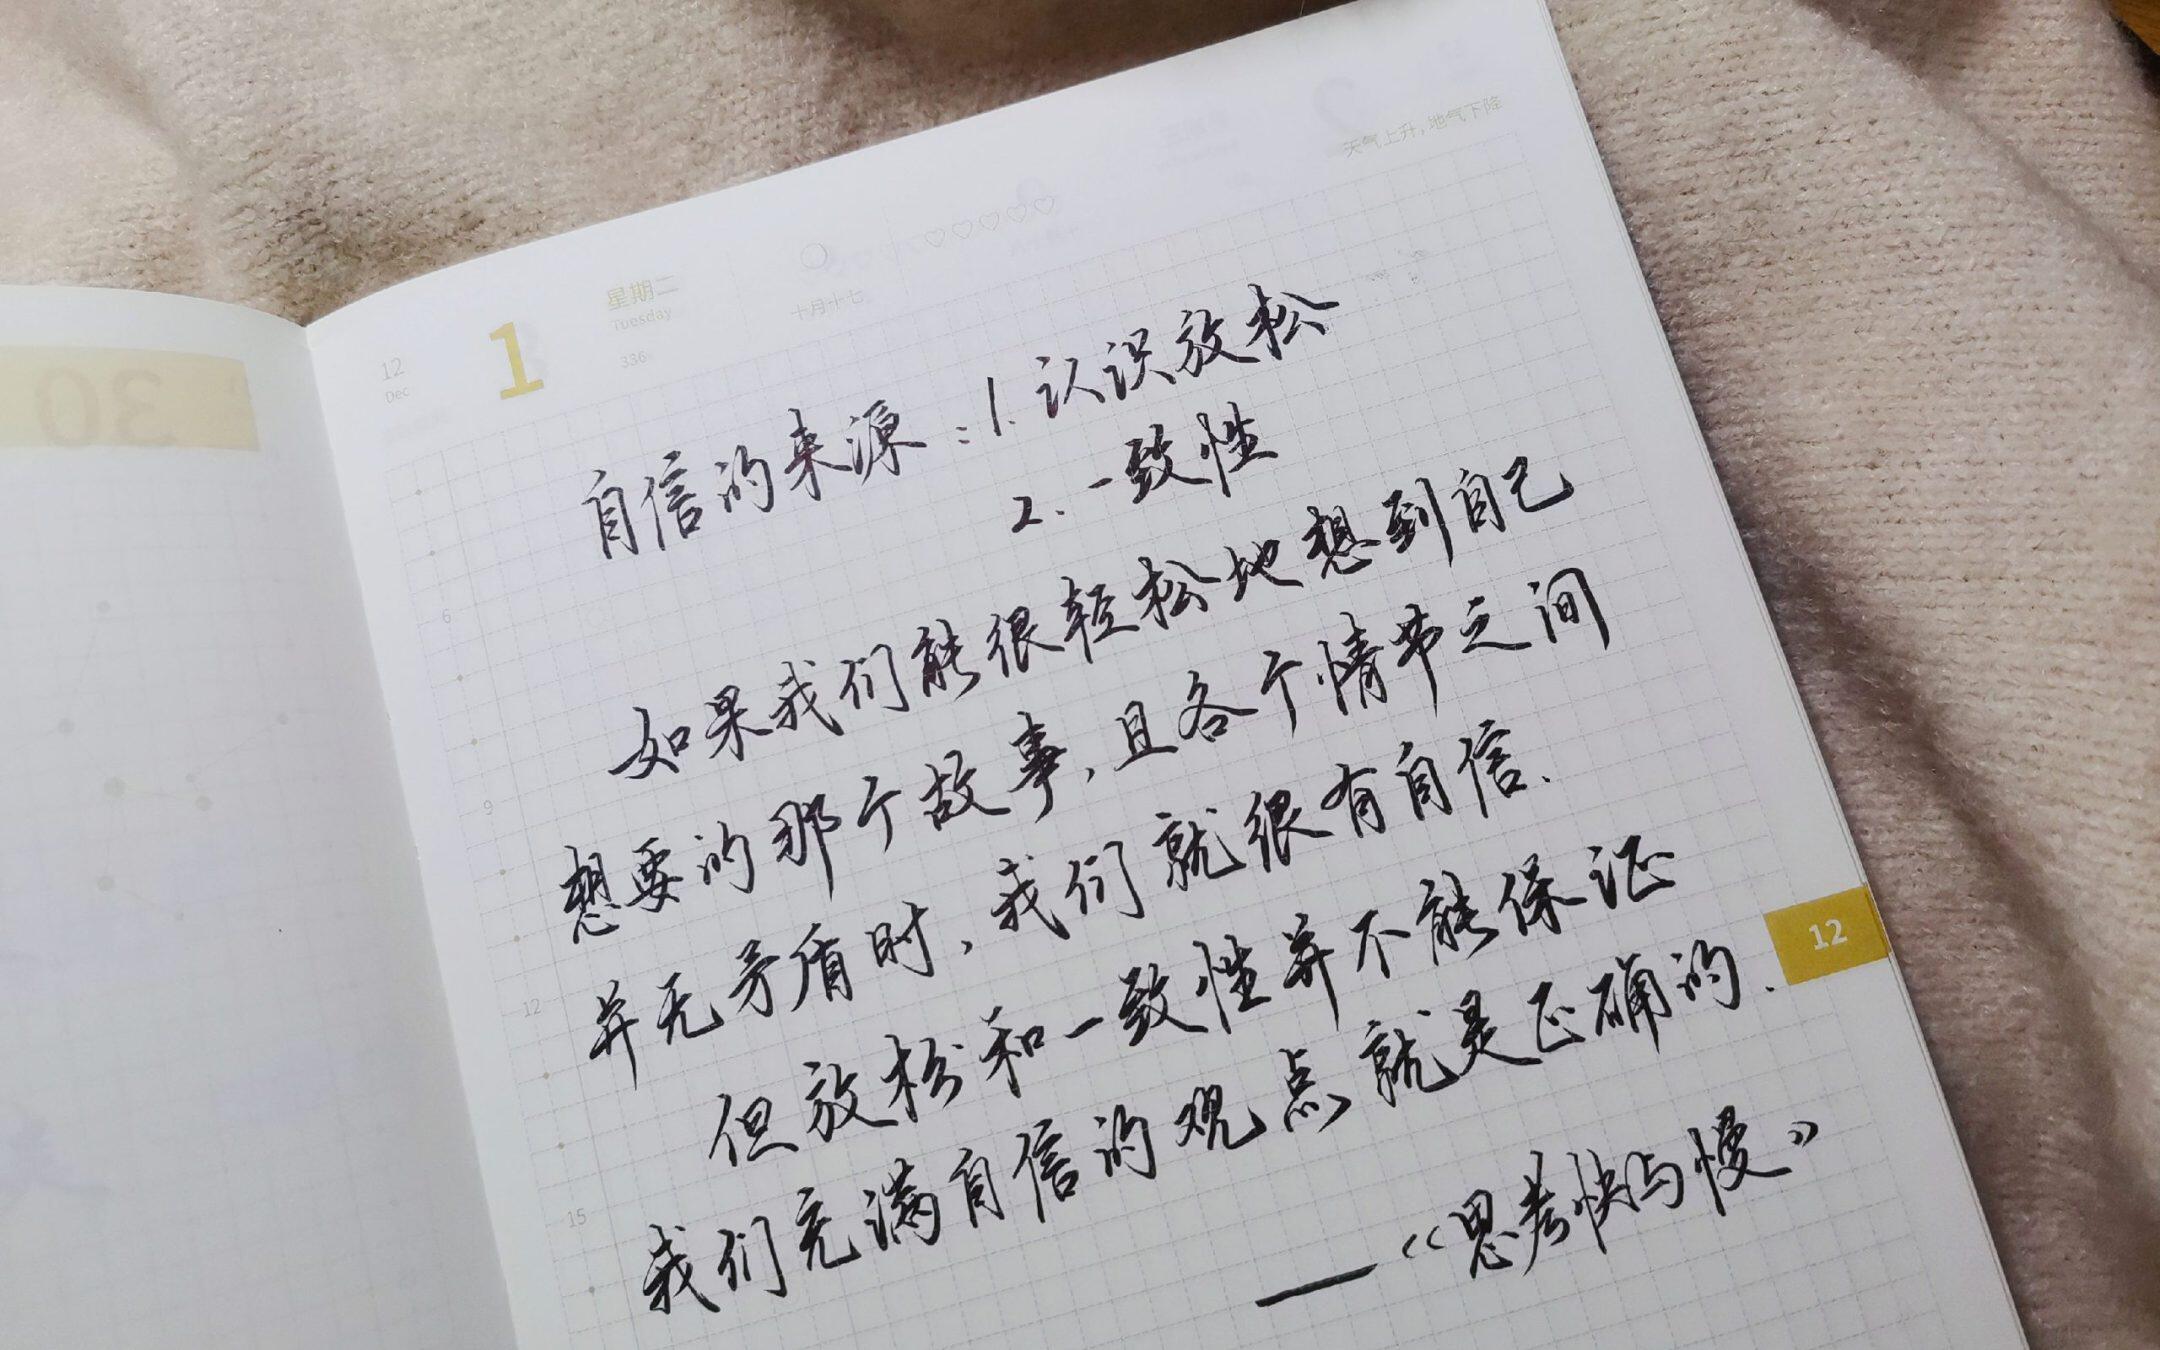 天气上升，地气下降
12
Dec
1
星期二
Tuesday
336
十月十七
30
自信的来源：1.认识放松
2.一致性
如果我们能很轻松地想到自己
想要的那个故事，且各个情节之间
并无矛盾时，我们就很有自信.
但放松和一致性并不能保证
我们充满自信的观点就是正确的.
——《思考快与慢》
6
9
12
15
12